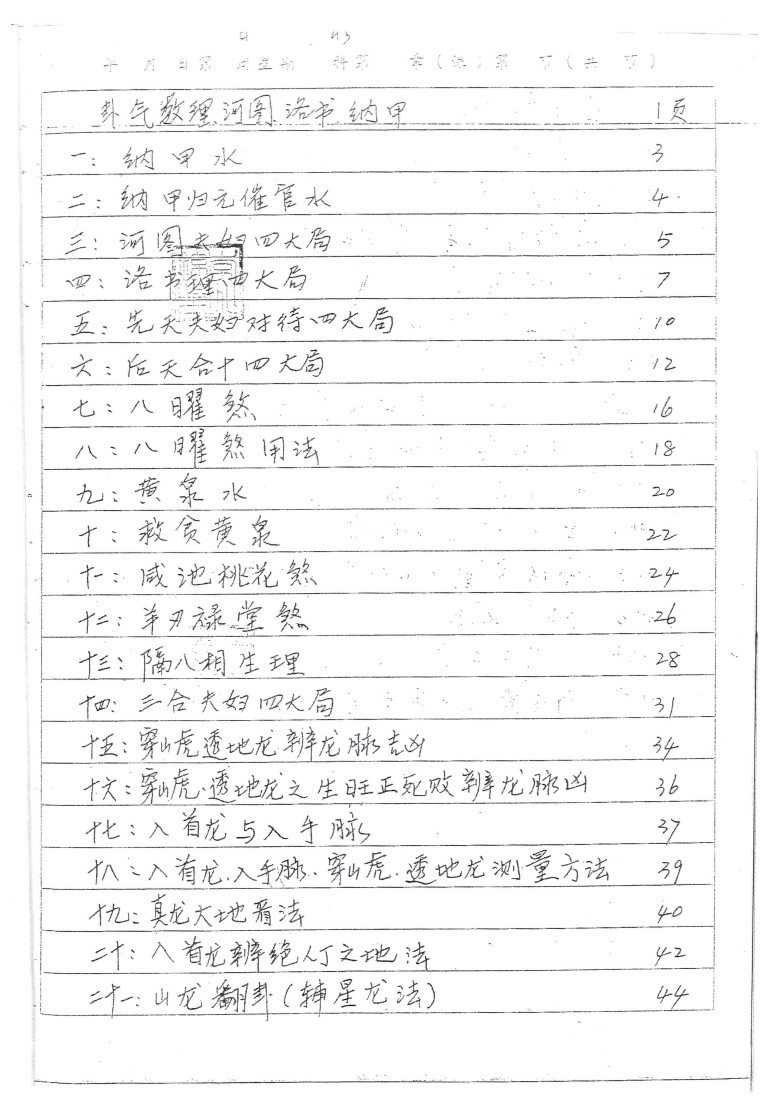 4 43
年 月 日第 周星期 科第 章(课)第 节(共 节)
卦气数理河图洛书纳甲 1页
一:纳甲水 3
二:纳甲归元催官水 4
三:河图夫妇四大局 5
四:洛书理四大局 7
五:先天夫妇对待四大局 10
六:后天合十四大局 12
七:八曜煞 16
八:八曜煞用法 18
九:黄泉水 20
十:救贫黄泉 22
十一:咸池桃花煞 24
十二:羊刃禄堂煞 26
十三:隔八相生理 28
十四:三合夫妇四大局 31
十五:穿山虎透地龙辨龙脉吉凶 34
十六:穿山虎·透地龙之生旺正死败辨龙脉凶 36
十七:入首龙与入手脉 37
十八:入首龙.入手脉.穿山虎.透地龙测量方法 39
十九:真龙大地看法 40
二十:入首龙辨绝人丁之地法 42
二十一:山龙翻卦(辅星龙法) 44